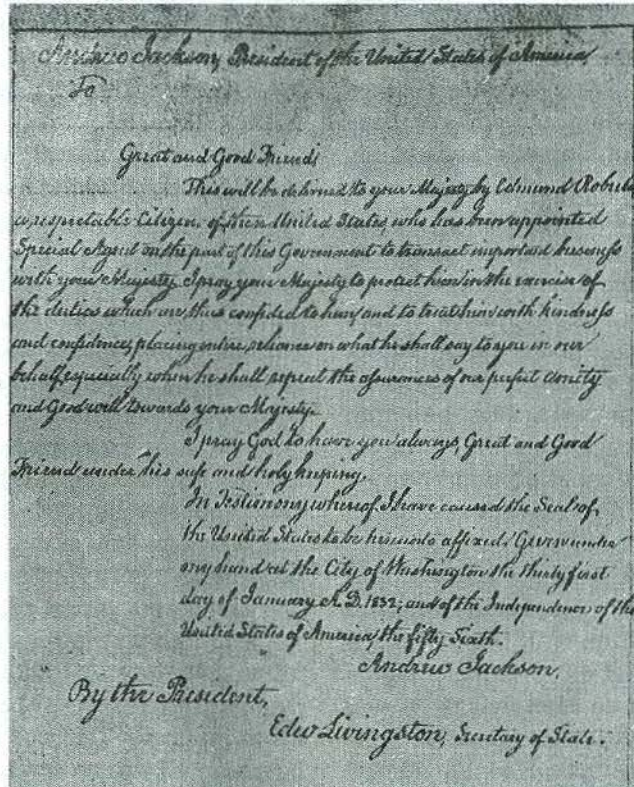 Andrew Jackson, President of the United States of America,
To
Great and Good Friend
This will be delivered to your Majesty by Edmund Roberts
a respectable Citizen of these United States, who has been appointed
Special Agent on the part of this Government to transact important business
with your Majesty. I pray your Majesty to protect him in the exercise of
the duties which are thus confided to him, and to treat him with kindness
and confidence, placing entire reliance on what he shall say to you in our
behalf, especially when he shall repeat the assurances of our perfect amity
and Good will towards your Majesty.
I pray God to have you always, Great and Good
Friend under his safe and holy keeping.
In Testimony whereof, I have caused the Seal of
the United States to be hereunto affixed. Given under
my hand at the City of Washington the thirty first
day of January A.D. 1832; and of the Independence of the
United States of America, the fifty Sixth.
Andrew Jackson.
By the President,
Edw Livingston, Secretary of State.